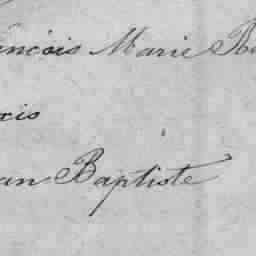 ancois Marie
xis
an Baptiste